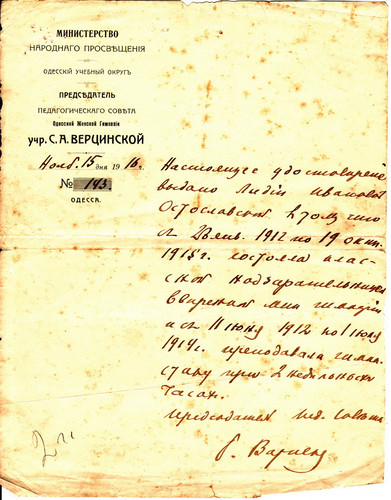 МИНИСТЕРСТВО
НАРОДНАГО ПРОСВѢЩЕНІЯ
ОДЕССКІЙ УЧЕБНЫЙ ОКРУГЪ
ПРЕДСѢДАТЕЛЬ
ПЕДАГОГИЧЕСКАГО СОВѢТА
Одесской Женской Гимназіи
учр. С. А. ВЕРЦИНСКОЙ
Нояб. 15 дня 1916 г.
№ 193.
ОДЕССА.
Настоящее удостовѣрение
выдано Лидіи Ивановнѣ
Остославской въ томъ что
съ 1912 по 19 окт.
1915 г. состояла клас-
сной надзирательницей
ввѣренной мнѣ гимназіи
а съ 11 іюня 1912 по 1 іюля
1914 г. преподавала гимна-
стику при 2 недѣльныхъ
часахъ.
Предсѣдатель пед. Совѣта